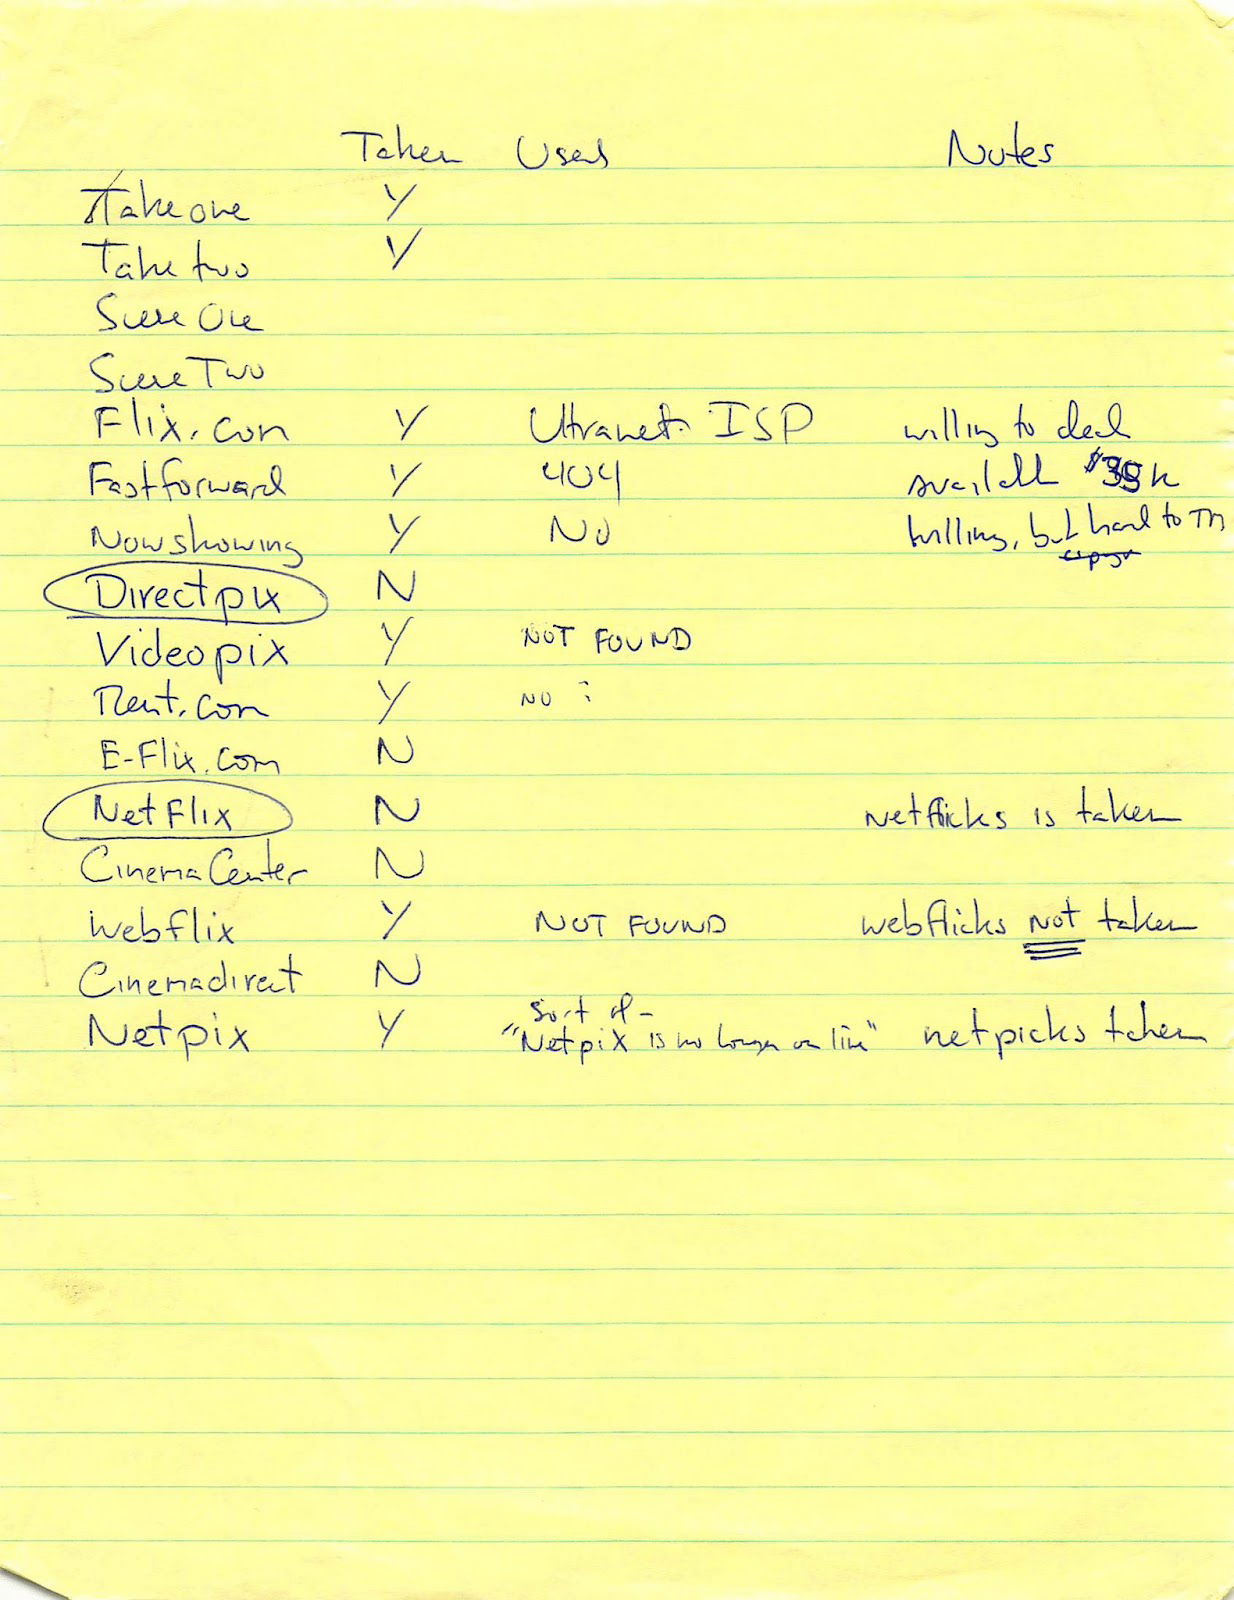 Taken Used Notes
Takeone Y
Taketwo Y
SceneOne
SceneTwo
Flix.com Y Ultranet ISP willing to deal
Fastforward Y 404 available $35k
Nowshowing Y No willing, but hard to TM
Directpix N
Videopix Y NOT FOUND
Rent.com Y NO
E-Flix.com N
NetFlix N netflicks is taken
CinemaCenter N
Webflix Y NOT FOUND webflicks NOT taken
Cinemadirect N
Sort of -
Netpix Y "Netpix is no longer on line" netpicks taken